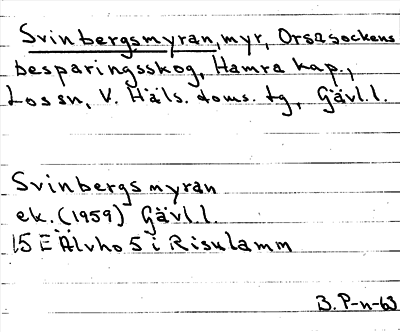 Svinbergsmyran, myr, Orsa sockens
besparingsskog, Hamra kap.,
Los sn, V. Häls. doms. tg, Gävl.l.
Svinbergsmyran
ek. (1959) Gävl.l.
15 E Älvho 5 i Risulamm
B. P-n-63